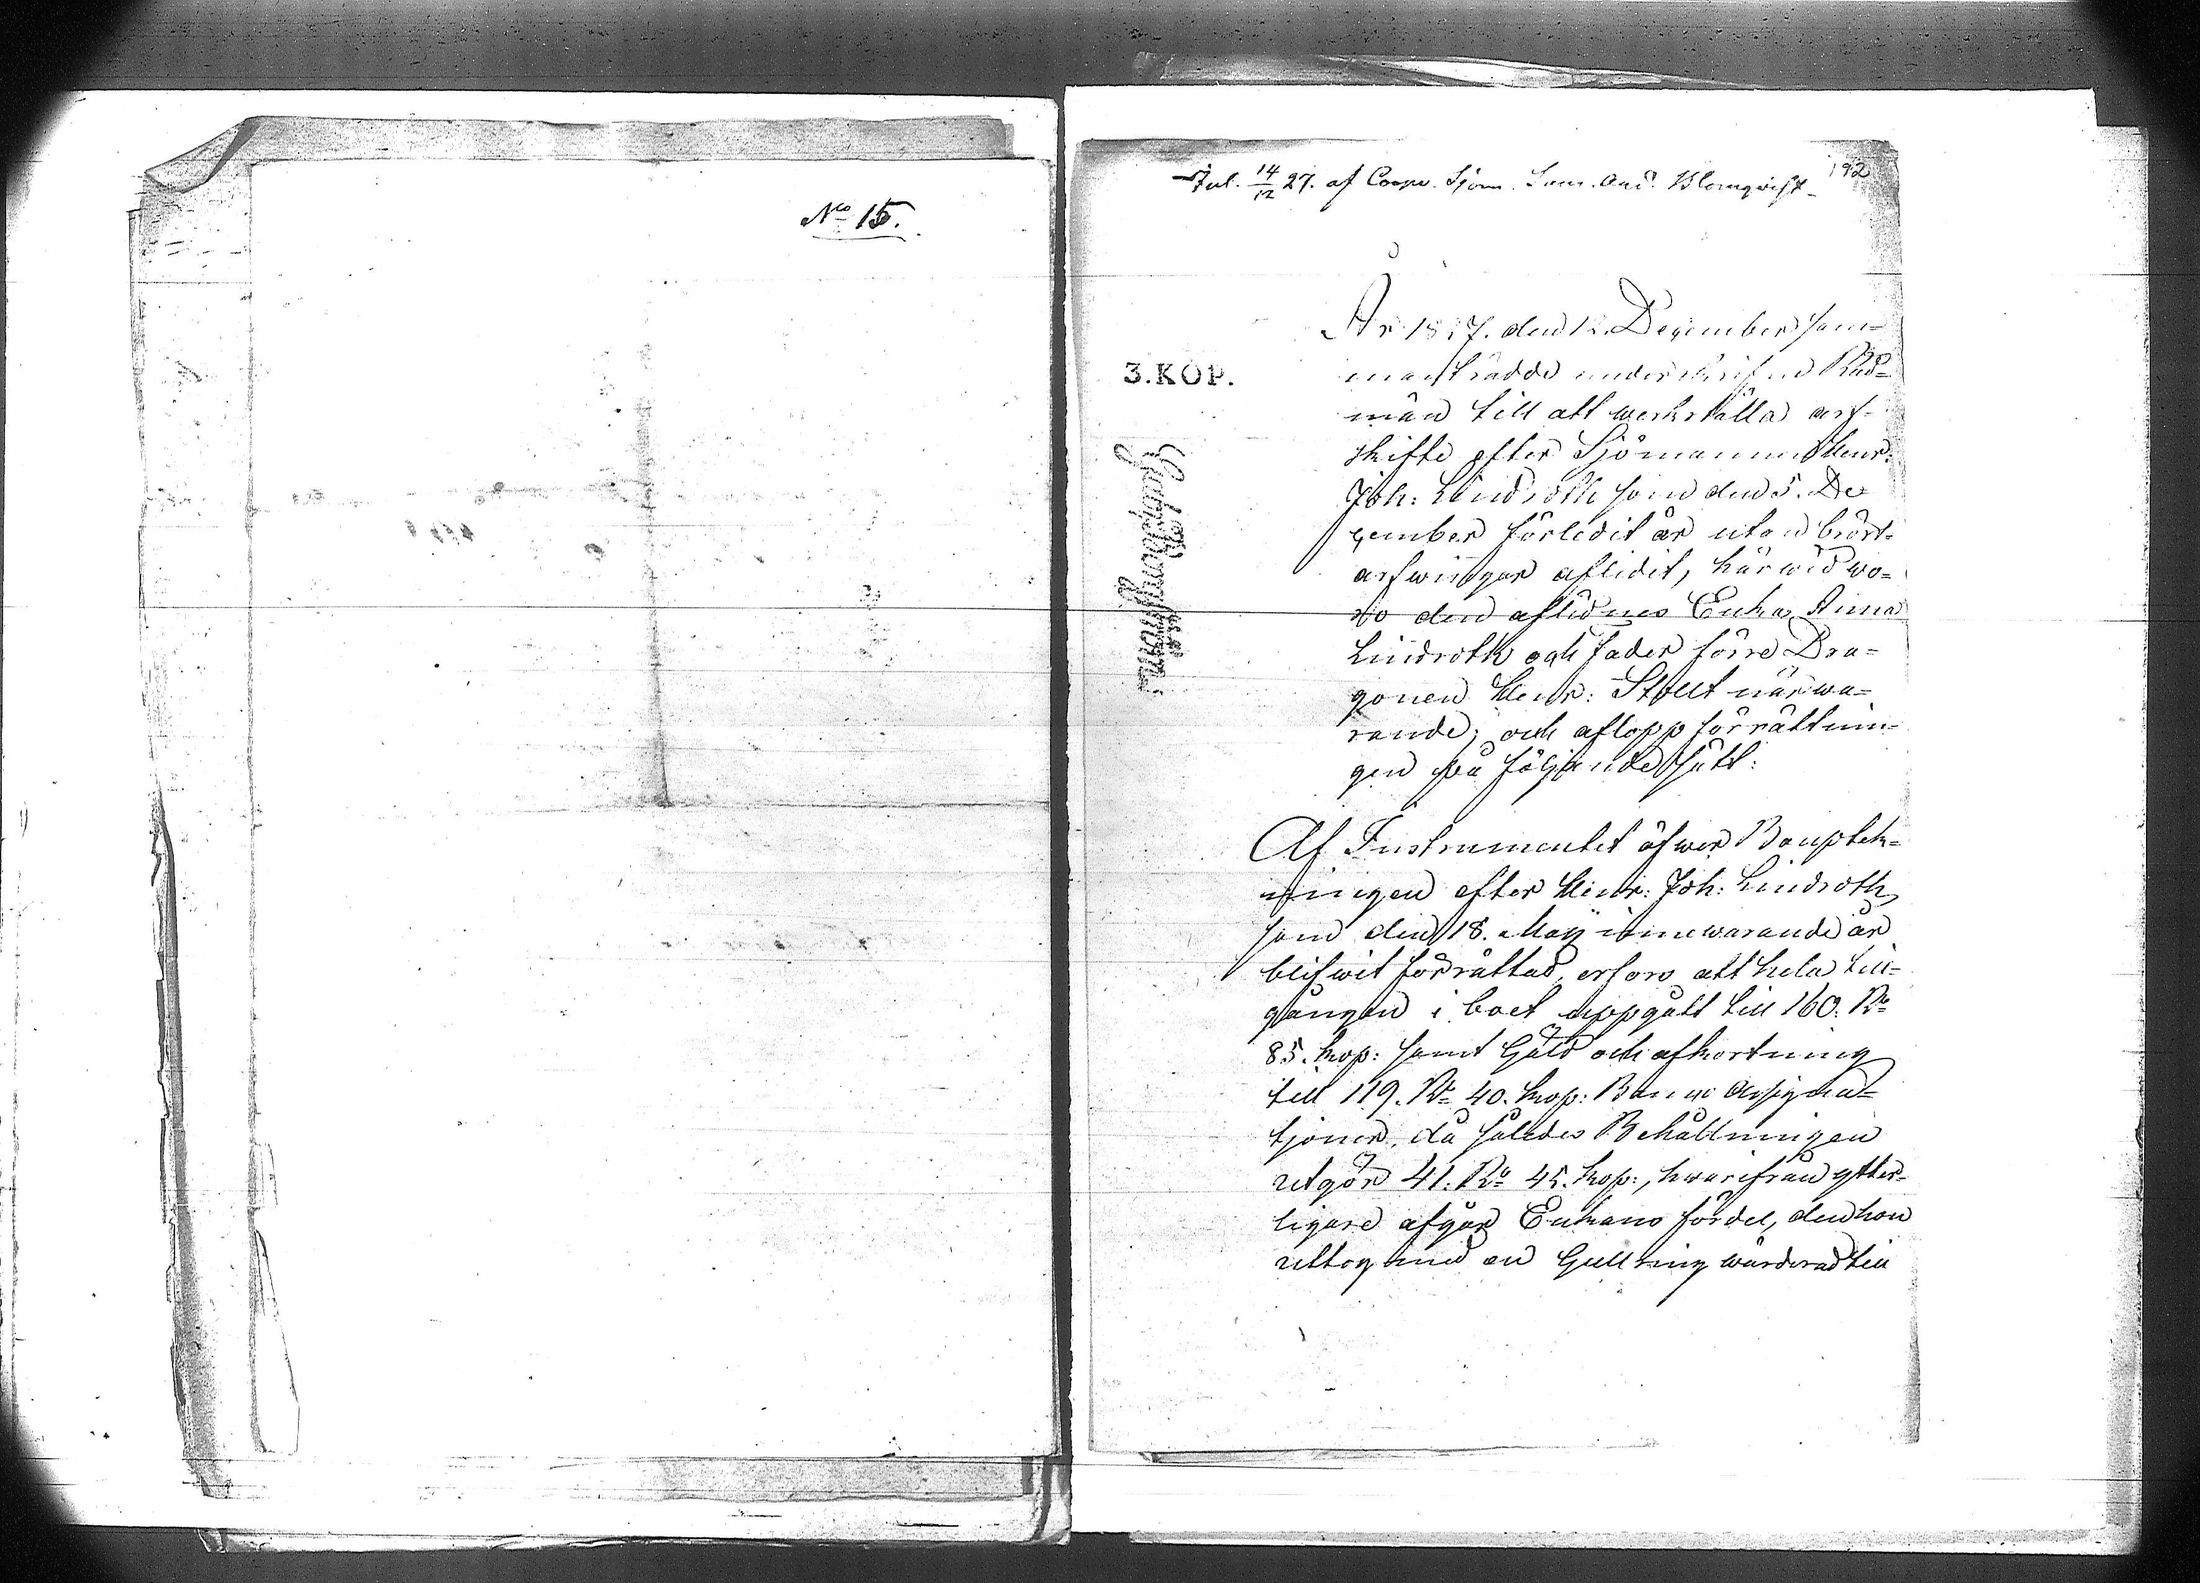 No 15.
192
Inl. 14/12 27. af Coopv. Sjöm. Sam. And. Blomqvist
3.KOP.
År 1827. den 12. December sam-
manträdde underskrifne Råd-
män till att werkställa arf-
skifte efter Sjömannen Henr:
Joh: Lindroth som den 5. De-
cember förledit år utan bröst-
arfwingar aflidit, härwid wo-
ro den aflidnes Enka Anna
Lindroth och fader förre Dra-
gonen Henr: Stolt närwa-
rande; och aflopp förrättnin-
gen på följande sätt:
Af Instrumentet öfwer Boupptek-
ningen efter Henr: Joh: Lindroth,
som den 18. Maÿ innewarande år
blifwit förrättad, erfors att hela till-
gången i boet uppgått till 160. Ro
85. kop: samt Gäld och afkortning
till 119. Ro 40. kop: Banco Assigna-
tjoner, då således Behållningen
utgör 41. Ro 45. kop:, hwarifrån ytter-
ligare afgår Enkans fördel, den hon
uttog med en Gullring wärderad till